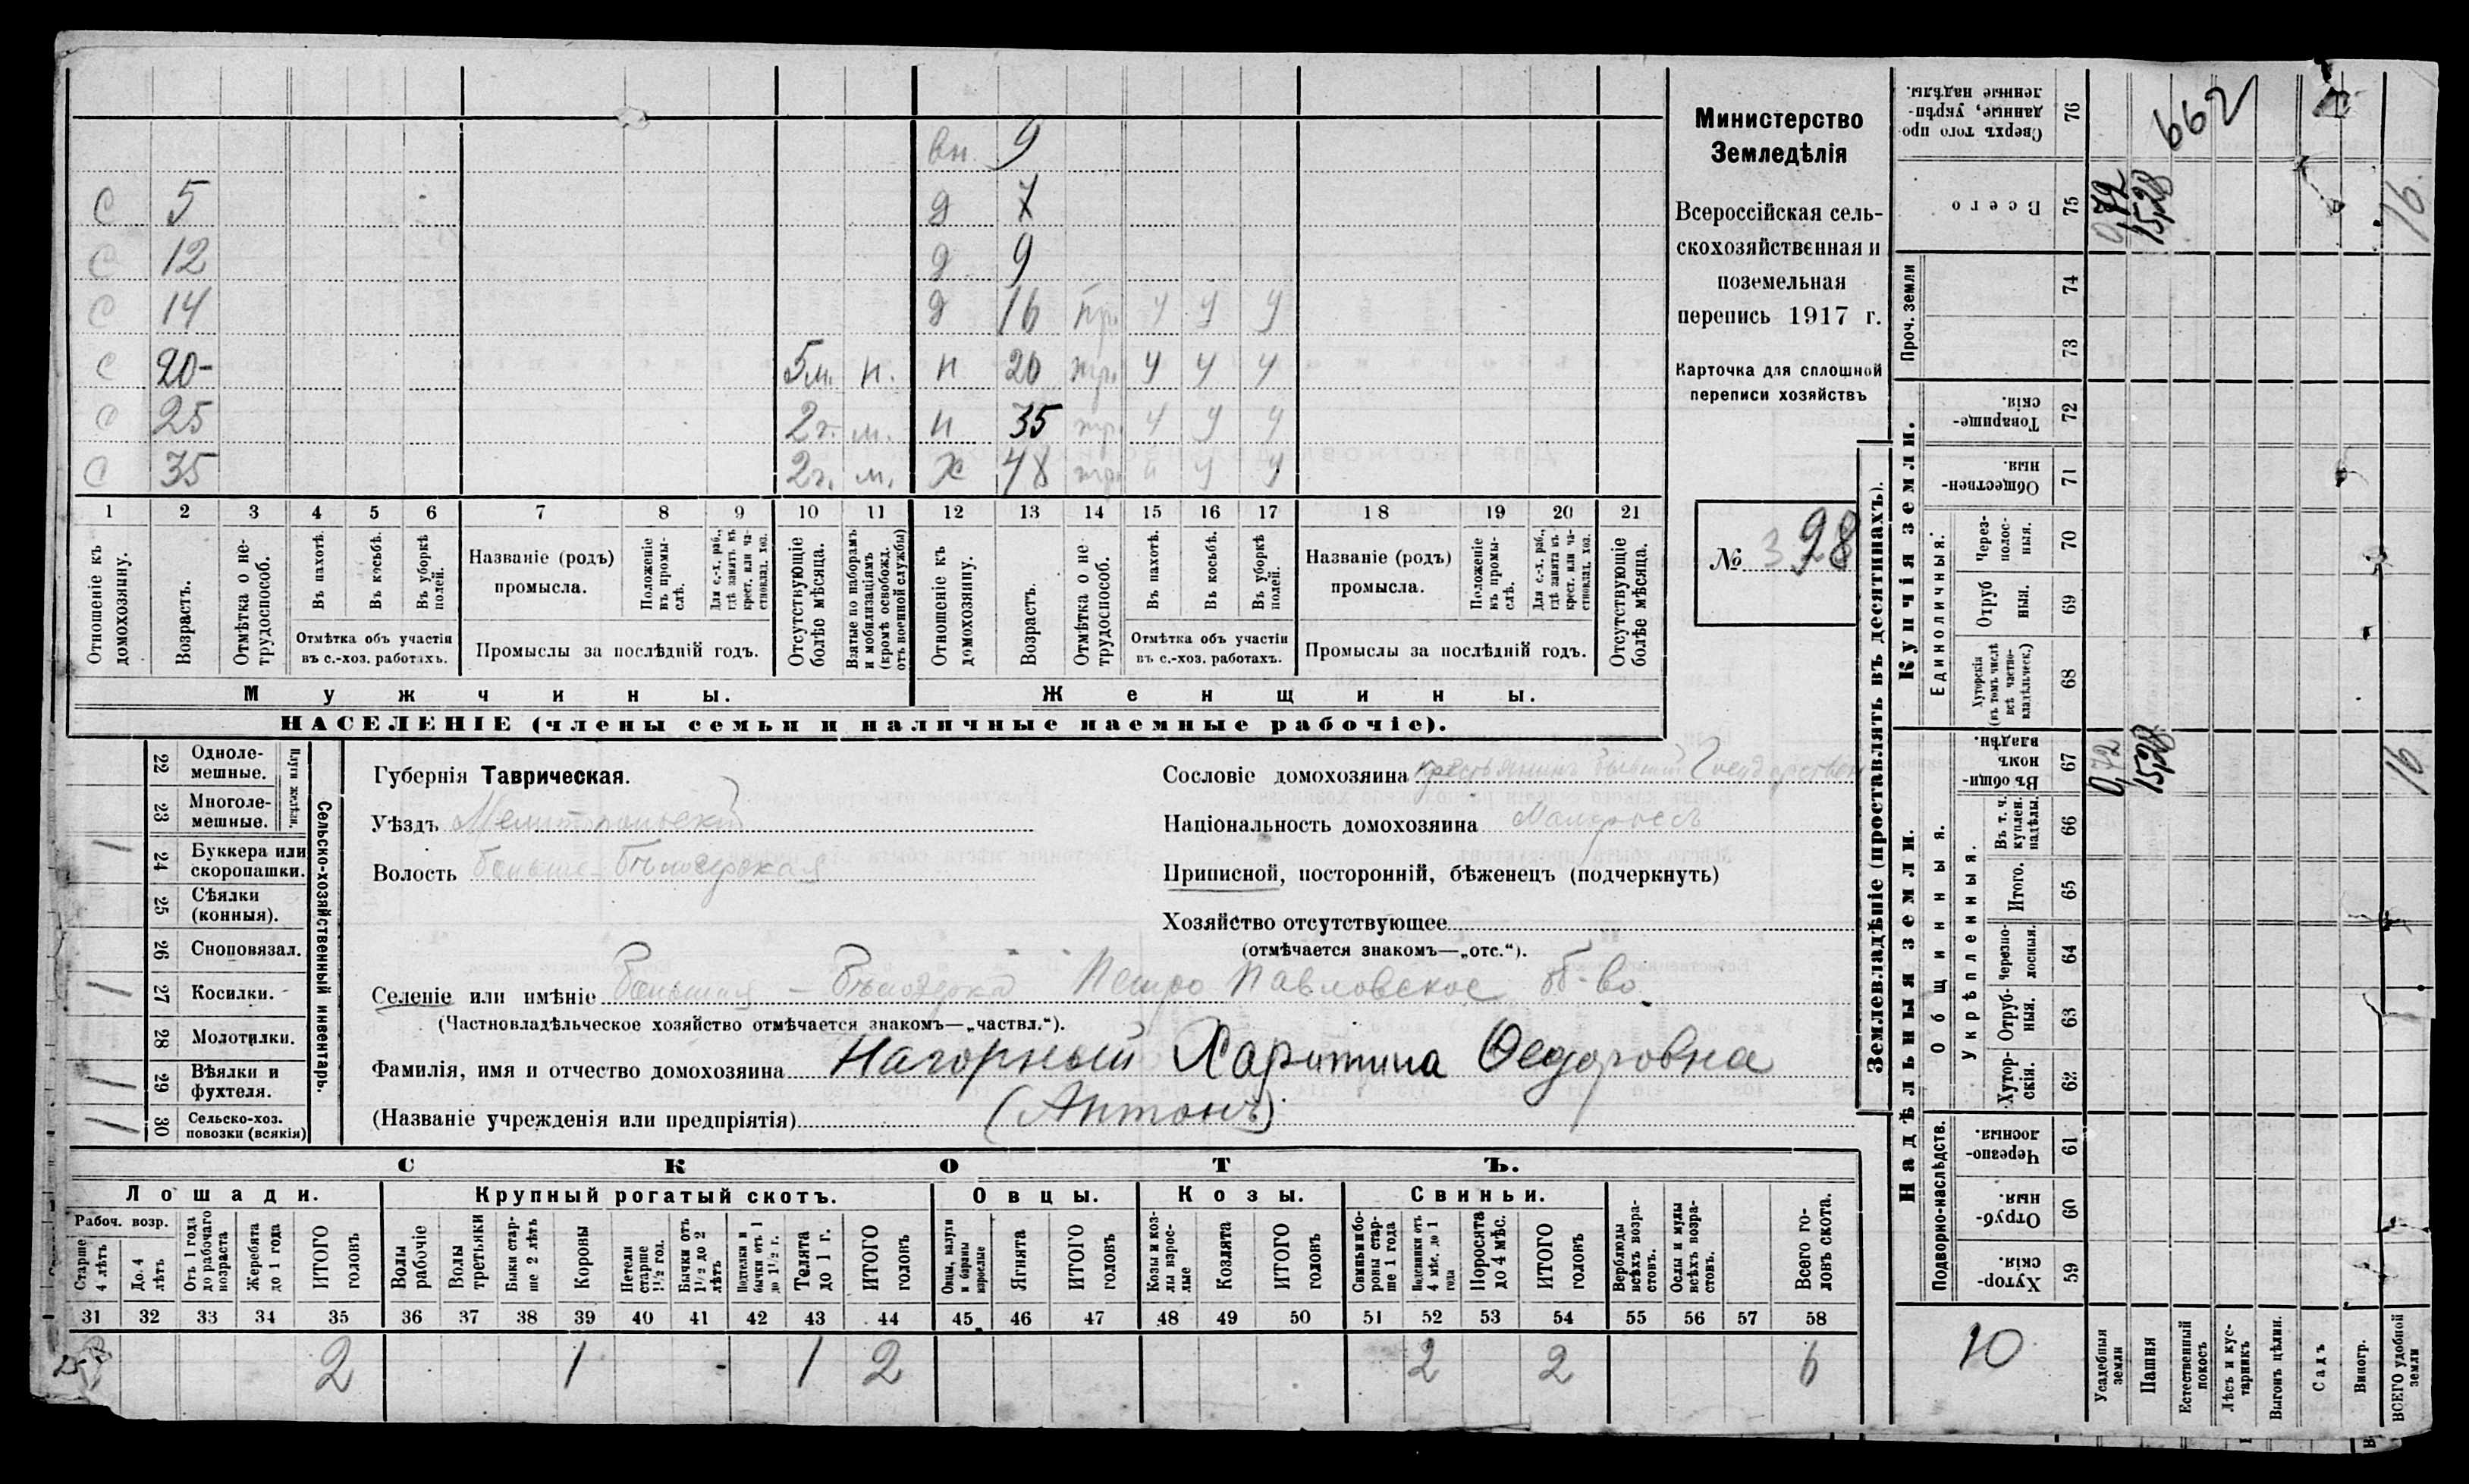 вн. 9
с 5 д 7
с 12 д 9
с 14 д 16 пр. у у у
с 20- 5 м. н. н 20 у у у
с 25 2 г. м. н 35 у у у
с 35 2 г. м. х 48 у у
1 2 3 4 5 6 7 8 9 10 11 12 13 14 15 16 17 18 19 20 21
Отношеніе къ домохозяину.
Возрастъ.
Отмѣтка о нетрудоспособ.
Въ пахотѣ.
Въ косьбѣ.
Въ уборкѣ полей.
Отмѣтка объ участіи
въ с.-хоз. работахъ.
Названіе (родъ)
промысла.
Положеніе въ промыслѣ.
Для с.-х. раб., гдѣ занятъ въ крест. или частновлад. хоз.
Промыслы за послѣдній годъ.
Отсутствующіе болѣе мѣсяца.
Взятые по наборамъ и мобилизаціямъ (кромѣ освобожд. отъ военной службы)
Отношеніе къ домохозяину.
Возрастъ.
Отмѣтка о не трудоспособ.
Въ пахотѣ.
Въ косьбѣ.
Въ уборкѣ полей.
Отмѣтка объ участіи
въ с.-хоз. работахъ.
Названіе (родъ)
промысла.
Положеніе въ промыслѣ.
Для с.-х. раб., гдѣ занята въ крест. или частновлад. хоз.
Промыслы за послѣдній годъ.
Отсутствующіе болѣе мѣсяца.
Мужчины.
Женщины.
НАСЕЛЕНІЕ (члены семьи и наличные наемные рабочіе).
Министерство
Земледѣлія
Всероссійская сель-
скохозяйственная и
поземельная
перепись 1917 г.
Карточка для сплошной
переписи хозяйствъ
№ 3 98
22 Одноле-
мешные.
23 Многоле-
мешные.
Плуги желѣзн.
1 24 Буккера или
скоропашки.
25 Сѣялки
(конныя).
26 Сноповязал.
1 27 Косилки.
28 Молотилки.
1 29 Вѣялки и
фухтеля.
1 30 Сельско-хоз.
повозки (всякія)
Сельско-хозяйственный инвентарь.
Губернія Таврическая.
Уѣздъ Мелитопольскій
Волость Больше-Бѣлозерская
Сословіе домохозяина крестьянинъ бывшій Государствен
Національность домохозяина Малороссъ
Приписной, посторонній, бѣженецъ (подчеркнуть)
Хозяйство отсутствующее
(отмѣчается знакомъ—„отс.“).
Селеніе или имѣніе Большая - Бѣлозерка Петро Павловское об-во
(Частновладѣльческое хозяйство отмѣчается знакомъ—„частвл.“).
Фамилія, имя и отчество домохозяина Нагорный Харитина Ѳедоровна
(Названіе учрежденія или предпріятія) (Антонъ)
СКОТЪ.
Лошади.
Крупный рогатый скотъ.
Овцы.
Козы.
Свиньи.
Рабоч. возр.
Старше 4 лѣтъ
До 4 лѣтъ
Отъ 1 года до рабочаго возраста
Жеребята до 1 года
ИТОГО головъ
Волы рабочіе
Волы третьяки
Быки старше 2 лѣтъ
Коровы
Нетели старше 1½ год.
Бычки отъ 1½ до 2 лѣтъ
Подтелки и бычки отъ 1 до 1½ г.
Телята до 1 г.
ИТОГО головъ
Овцы, валухи и бараны взрослые
Ягнята
ИТОГО головъ
Козы и козлы взрослые
Козлята
ИТОГО головъ
Свиньи и боровы старше 1 года
Подсвинки отъ 4 мѣс. до 1 года
Поросята до 4 мѣс.
ИТОГО головъ
Верблюды всѣхъ возрастовъ.
Ослы и мулы всѣхъ возрастовъ.
Всего головъ скота.
31 32 33 34 35 36 37 38 39 40 41 42 43 44 45 46 47 48 49 50 51 52 53 54 55 56 57 58
2 1 1 2 2 2 6
Землевладѣніе (проставлять въ десятинахъ).
Сверхъ того проданные, укрѣпленные надѣлы. 76
662
Всего 75 0,72 15,28 16
Проч. земли
74
73
Купчія земли.
Товарищескія. 72
Общественныя. 71
Единоличныя.
Черезполосныя. 70
Отрубныя. 69
Хуторскія (въ томъ числѣ всѣ частновладѣльческ.) 68
Надѣльныя земли.
Общинныя.
Въ общинномъ владѣн. 67 0,72 15,28 16
Укрѣпленныя.
Въ т. ч. куплен. надѣлы. 66
Итого. 65
Черезполосныя. 64
Отрубныя. 63
Хуторскія. 62
Подворно-наслѣдств.
Черезполосныя. 61
Отрубныя. 60
Хуторскія. 59
10
Усадебныя земли
Пашня
Естественный покосъ
Лѣсъ и кустарникъ
Выгонъ цѣлин.
Садъ
Виногр.
ВСЕГО удобной земли